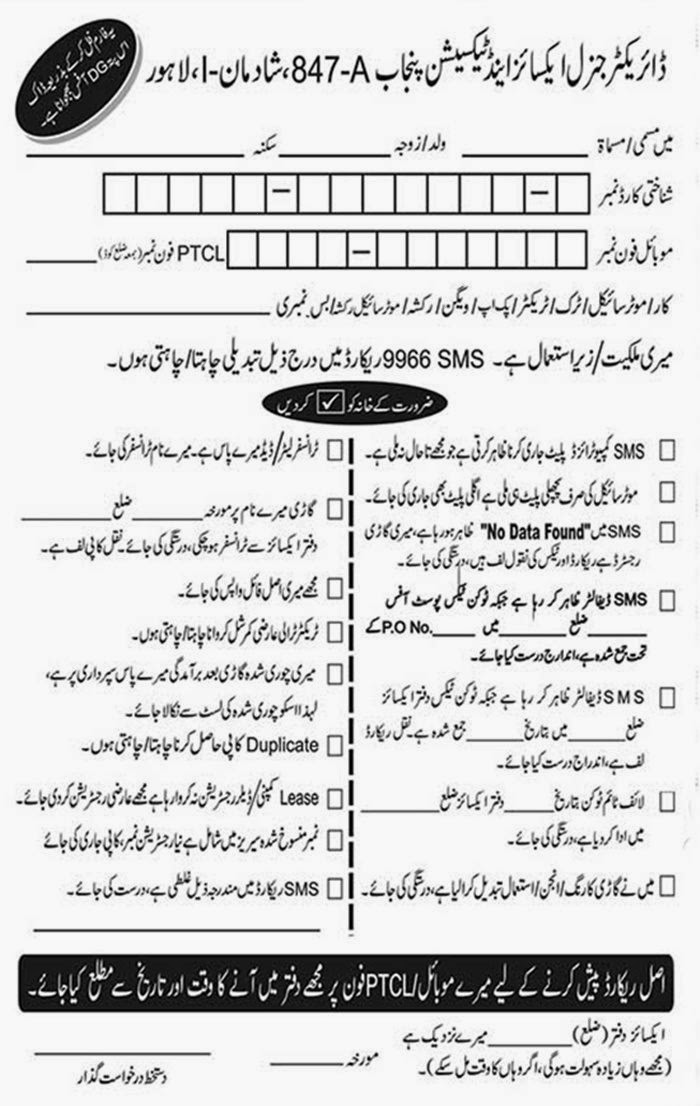 یہ فارم فل کر کے بذریعہ ڈاک
اس پتہ DG آفس بھجوانا ہے۔
ڈائریکٹر جنرل ایکسائز اینڈ ٹیکسیشن پنجاب 847-A، شادمان-I، لاہور
میں مسمی/مسماة ولد/زوجہ سکنہ
شناختی کارڈ نمبر
موبائل فون نمبر PTCL فون نمبر (بمعہ ضلع کوڈ)
کار/موٹر سائیکل/ٹرک/ٹریکٹر/پک اپ/ویگن/رکشہ/موٹر سائیکل رکشہ/بس نمبری
میری ملکیت/زیر استعمال ہے۔ 9966 SMS ریکارڈ میں درج ذیل تبدیلی چاہتا/چاہتی ہوں۔
ضرورت کے خانہ کو ✓ کر دیں
SMS کمپیوٹرائزڈ پلیٹ جاری کرنا ظاہر کرتی ہے جو مجھے تاحال نہ ملی ہے۔
موٹر سائیکل کی صرف پچھلی پلیٹ ہی ملی ہے اگلی پلیٹ بھی جاری کی جائے۔
SMS میں "No Data Found" ظاہر ہو رہا ہے، میری گاڑی
رجسٹرڈ ہے ریکارڈ اور ٹیکس کی نقول لف ہیں، درستگی کی جائے۔
SMS ڈیفالٹر ظاہر کر رہا ہے جبکہ ٹوکن ٹیکس پوسٹ آفس
ضلع میں P.O No. کے
تحت جمع شدہ ہے، اندراج درست کیا جائے۔
SMS ڈیفالٹر ظاہر کر رہا ہے جبکہ ٹوکن ٹیکس دفتر ایکسائز
ضلع میں بتاریخ جمع شدہ ہے۔ نقل ریکارڈ
لف ہے، اندراج درست کیا جائے۔
لائف ٹائم ٹوکن بتاریخ دفتر ایکسائز ضلع
میں ادا کر دیا ہے، درستگی کی جائے۔
میں نے گاڑی کا رنگ/انجن/استعمال تبدیل کرا لیا ہے، درستگی کی جائے۔
ٹرانسفر لیٹر/ڈیڈ میرے پاس ہے۔ میرے نام ٹرانسفر کی جائے۔
گاڑی میرے نام پر مورخہ ضلع
دفتر ایکسائز سے ٹرانسفر ہو چکی، درستگی کی جائے۔ نقل کاپی لف ہے۔
مجھے میری اصل فائل واپس کی جائے۔
ٹریکٹر ٹرالی عارضی کمرشل کروانا چاہتا/چاہتی ہوں۔
میری چوری شدہ گاڑی بعد برآمدگی میرے پاس سپرداری پر ہے،
لہذا اسکو چوری شدہ کی لسٹ سے نکالا جائے۔
Duplicate کاپی حاصل کرنا چاہتا/چاہتی ہوں۔
Lease کمپنی/ڈیلر رجسٹریشن نہ کروا رہا ہے مجھے عارضی رجسٹریشن کر دی جائے۔
نمبر منسوخ شدہ سیریز میں شامل ہے نیا رجسٹریشن نمبر، کاپی جاری کی جائے
SMS ریکارڈ میں مندرجہ ذیل غلطی ہے، درست کی جائے۔
اصل ریکارڈ پیش کرنے کے لیے میرے موبائل/PTCL فون پر مجھے دفتر میں آنے کا وقت اور تاریخ سے مطلع کیا جائے۔
ایکسائز دفتر (ضلع) میرے نزدیک ہے
(مجھے وہاں زیادہ سہولت ہوگی، اگر وہاں کا وقت مل سکے)۔ مورخہ
دستخط درخواست گذار